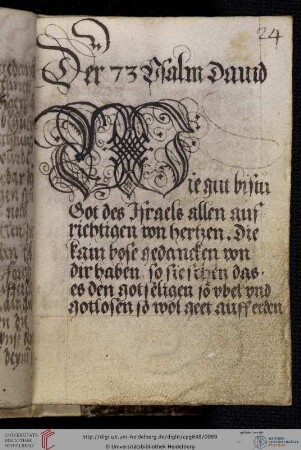 24
Der 73 Psalm Dauid
Wie gut bistu
Got des Israels allen auf
richtigen von hertzen. Die
kain bose gedancken von
dir haben so sie sehen das
es den gotseligen so vbel vnd
gotlosen so wol geet auff erden
UNIVERSITÄTS-
BIBLIOTHEK
HEIDELBERG
http://digi.ub.uni-heidelberg.de/diglit/cpg648/0069
© Universitätsbibliothek Heidelberg